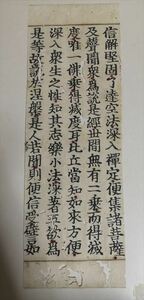 信解堅固了達空法深入禪定便集諸菩薩
及聲聞衆為說是經世間無有二乘而得滅
度唯一佛乘得滅度耳比丘當知如來方便
深入衆生之性知其志樂小法深著五欲為
是等故說於涅槃是人若聞則便信受譬如